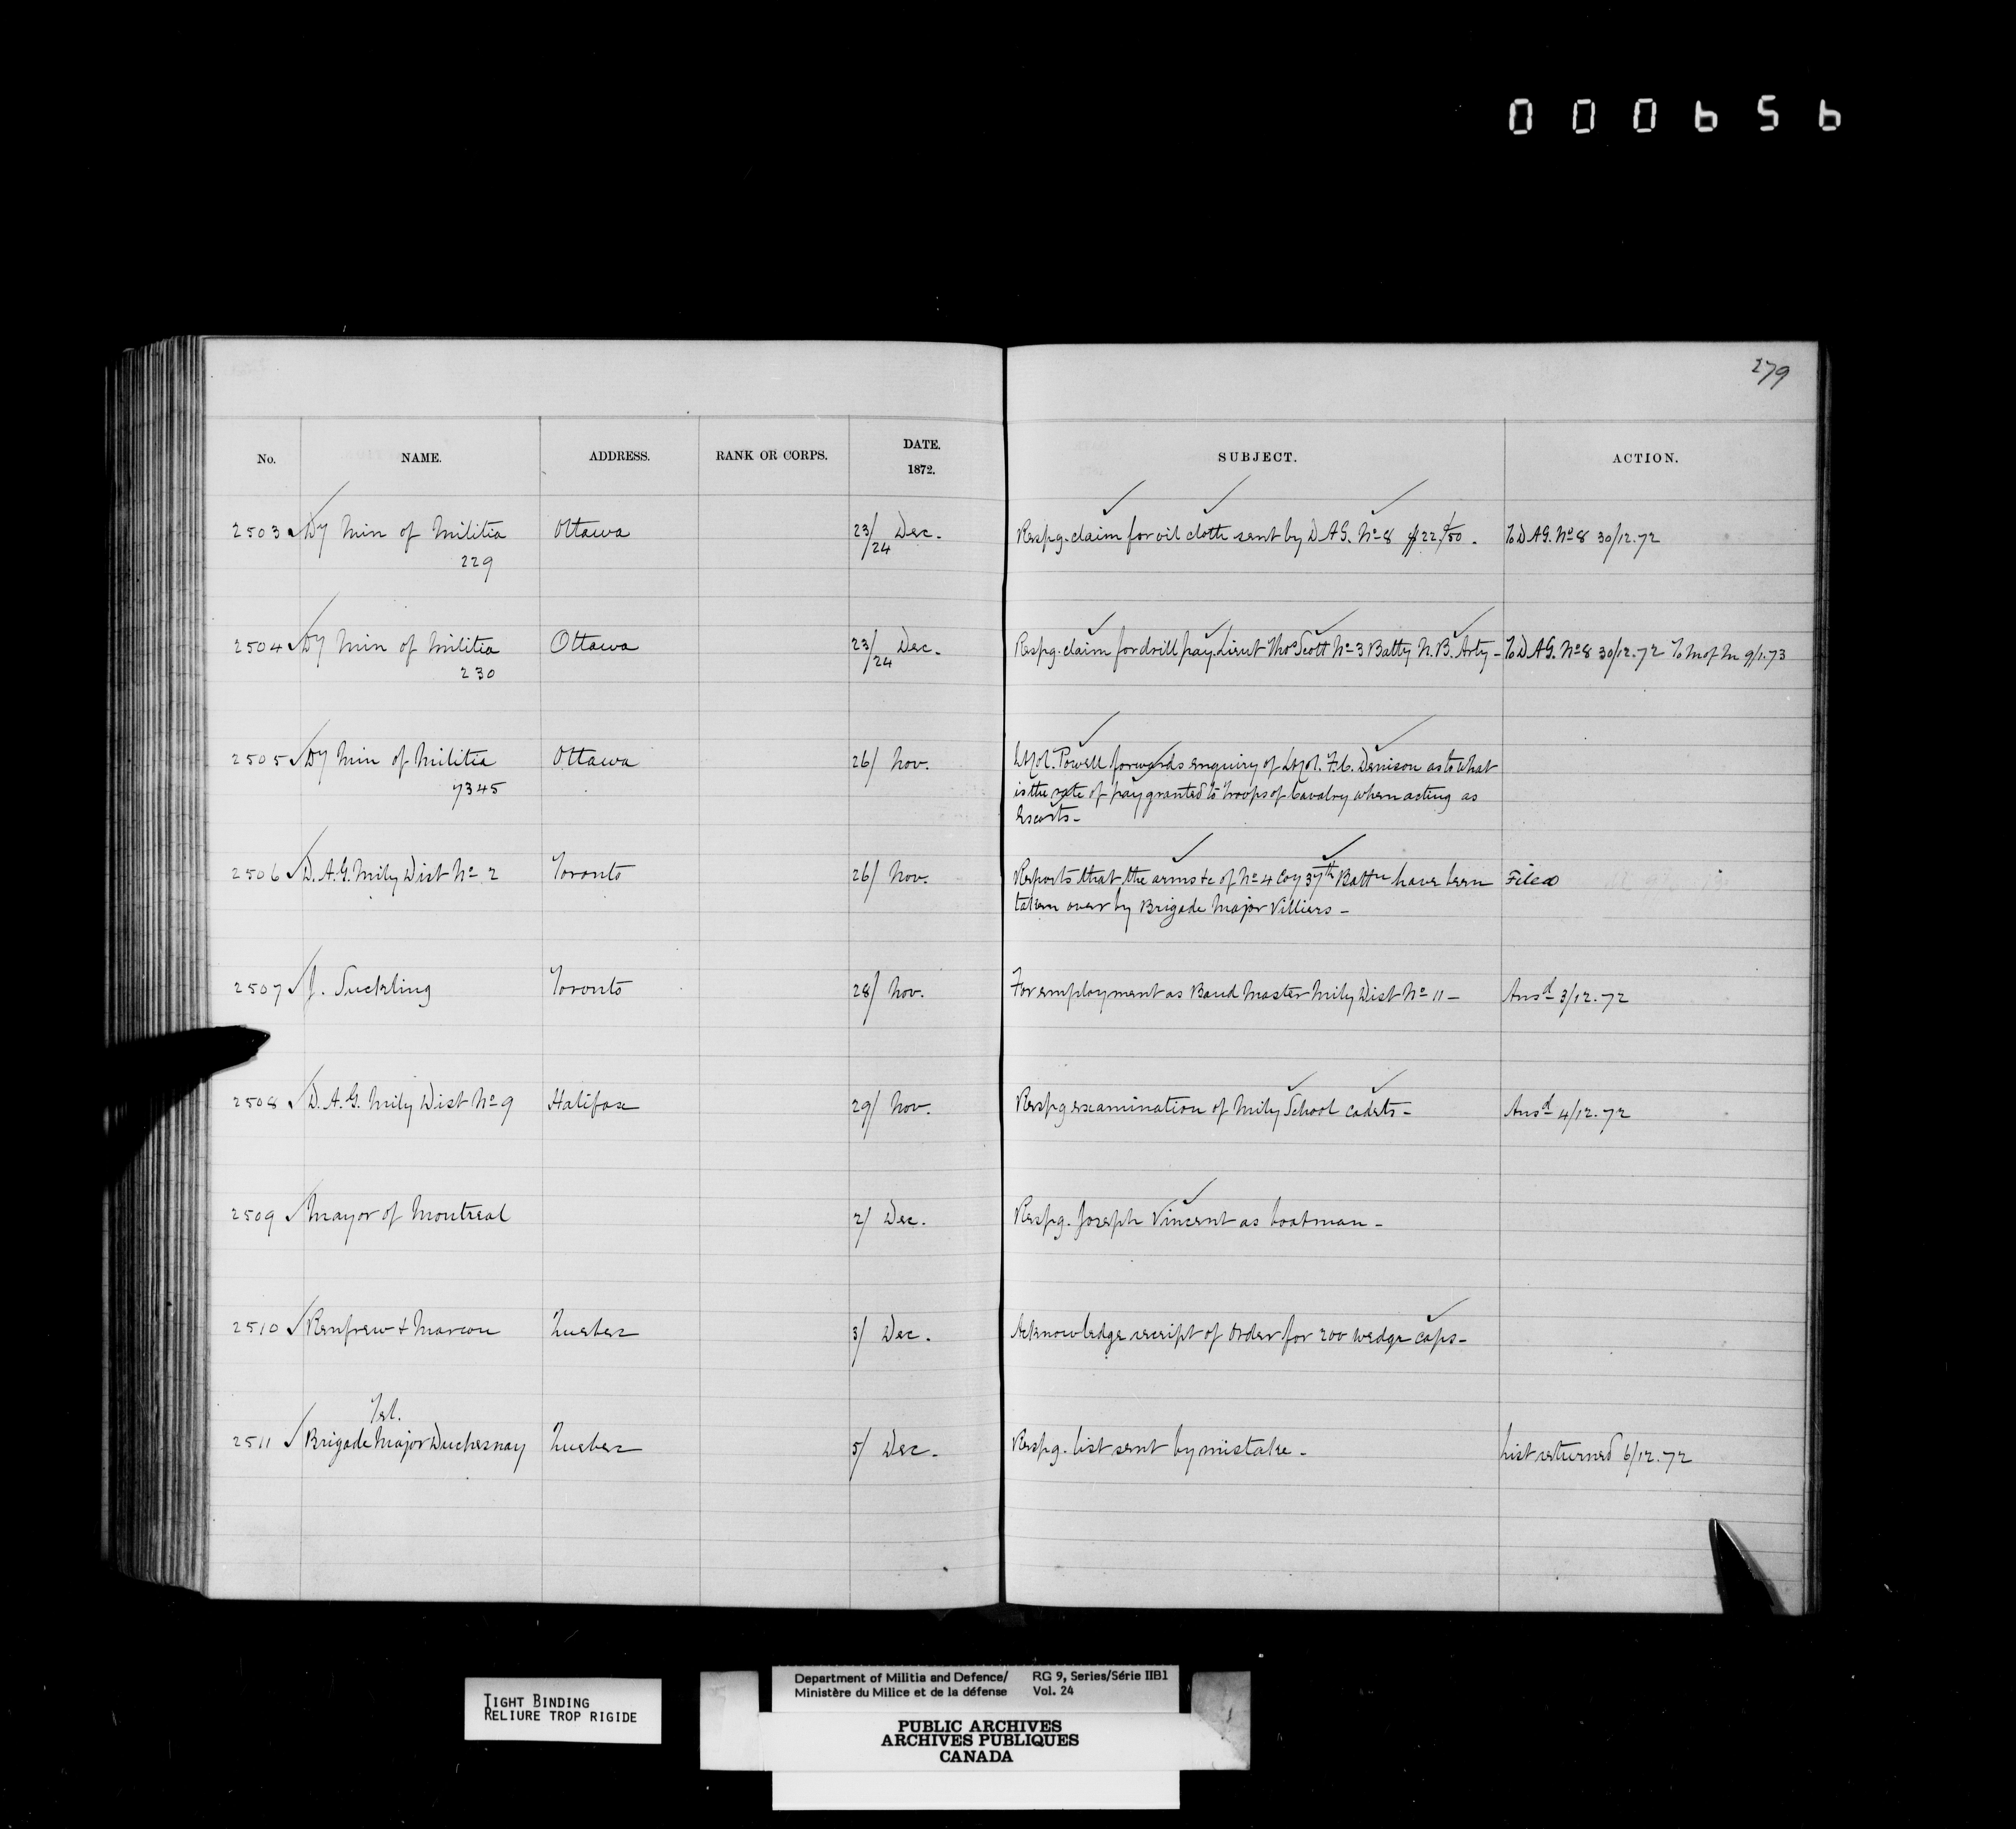 000656
279
No. NAME. ADDRESS. RANK OR CORPS. DATE. 1872. SUBJECT. ACTION.
2503 Dy Min of Militia Ottawa 23/24 Dec. Respg. claim for oil cloth sent by D.A.G. No 8 $22.50. To D.A.G. No 8 30/12.72
229
2504 Dy Min of Militia Ottawa 23/24 Dec. Respg. claim for drill pay. Lieut Thos Scott No 3 Batty N.B. Arty - To D.A.G. No 8 30/12.72 To M of M 9/1.73
230
2505 Dy Min of Militia Ottawa 26/ Nov. Lt Col. Powell forwards enquiry of Lt Col. F.C. Denison as to what
7345 is the rate of pay granted to Troops of Cavalry when acting as
Escorts -
2506 D.A.G. Mily Dist No 2 Toronto 26/ Nov. Reports that the arms &c of No 4 Coy 37th Battn have been Filed
taken over by Brigade Major Villiers -
2507 J. Suckling Toronto 28/ Nov. For employment as Band Master Mily Dist No 11 - Ansd 3/12.72
2508 D.A.G. Mily Dist No 9 Halifax 29/ Nov. Respg examination of Mily School Cadets - Ansd 4/12.72
2509 Mayor of Montreal 2/ Dec. Respg. Joseph Vincent as boatman -
2510 Renfrew & Marcou Quebec 3/ Dec. Acknowledge receipt of order for 200 wedge caps -
Tel.
2511 Brigade Major Duchesnay Quebec 5/ Dec. Respg. list sent by mistake - List returned 6/12.72
TIGHT BINDING
RELIURE TROP RIGIDE
Department of Militia and Defence/ RG 9, Series/Série IIB1
Ministère du Milice et de la défense Vol. 24
PUBLIC ARCHIVES
ARCHIVES PUBLIQUES
CANADA